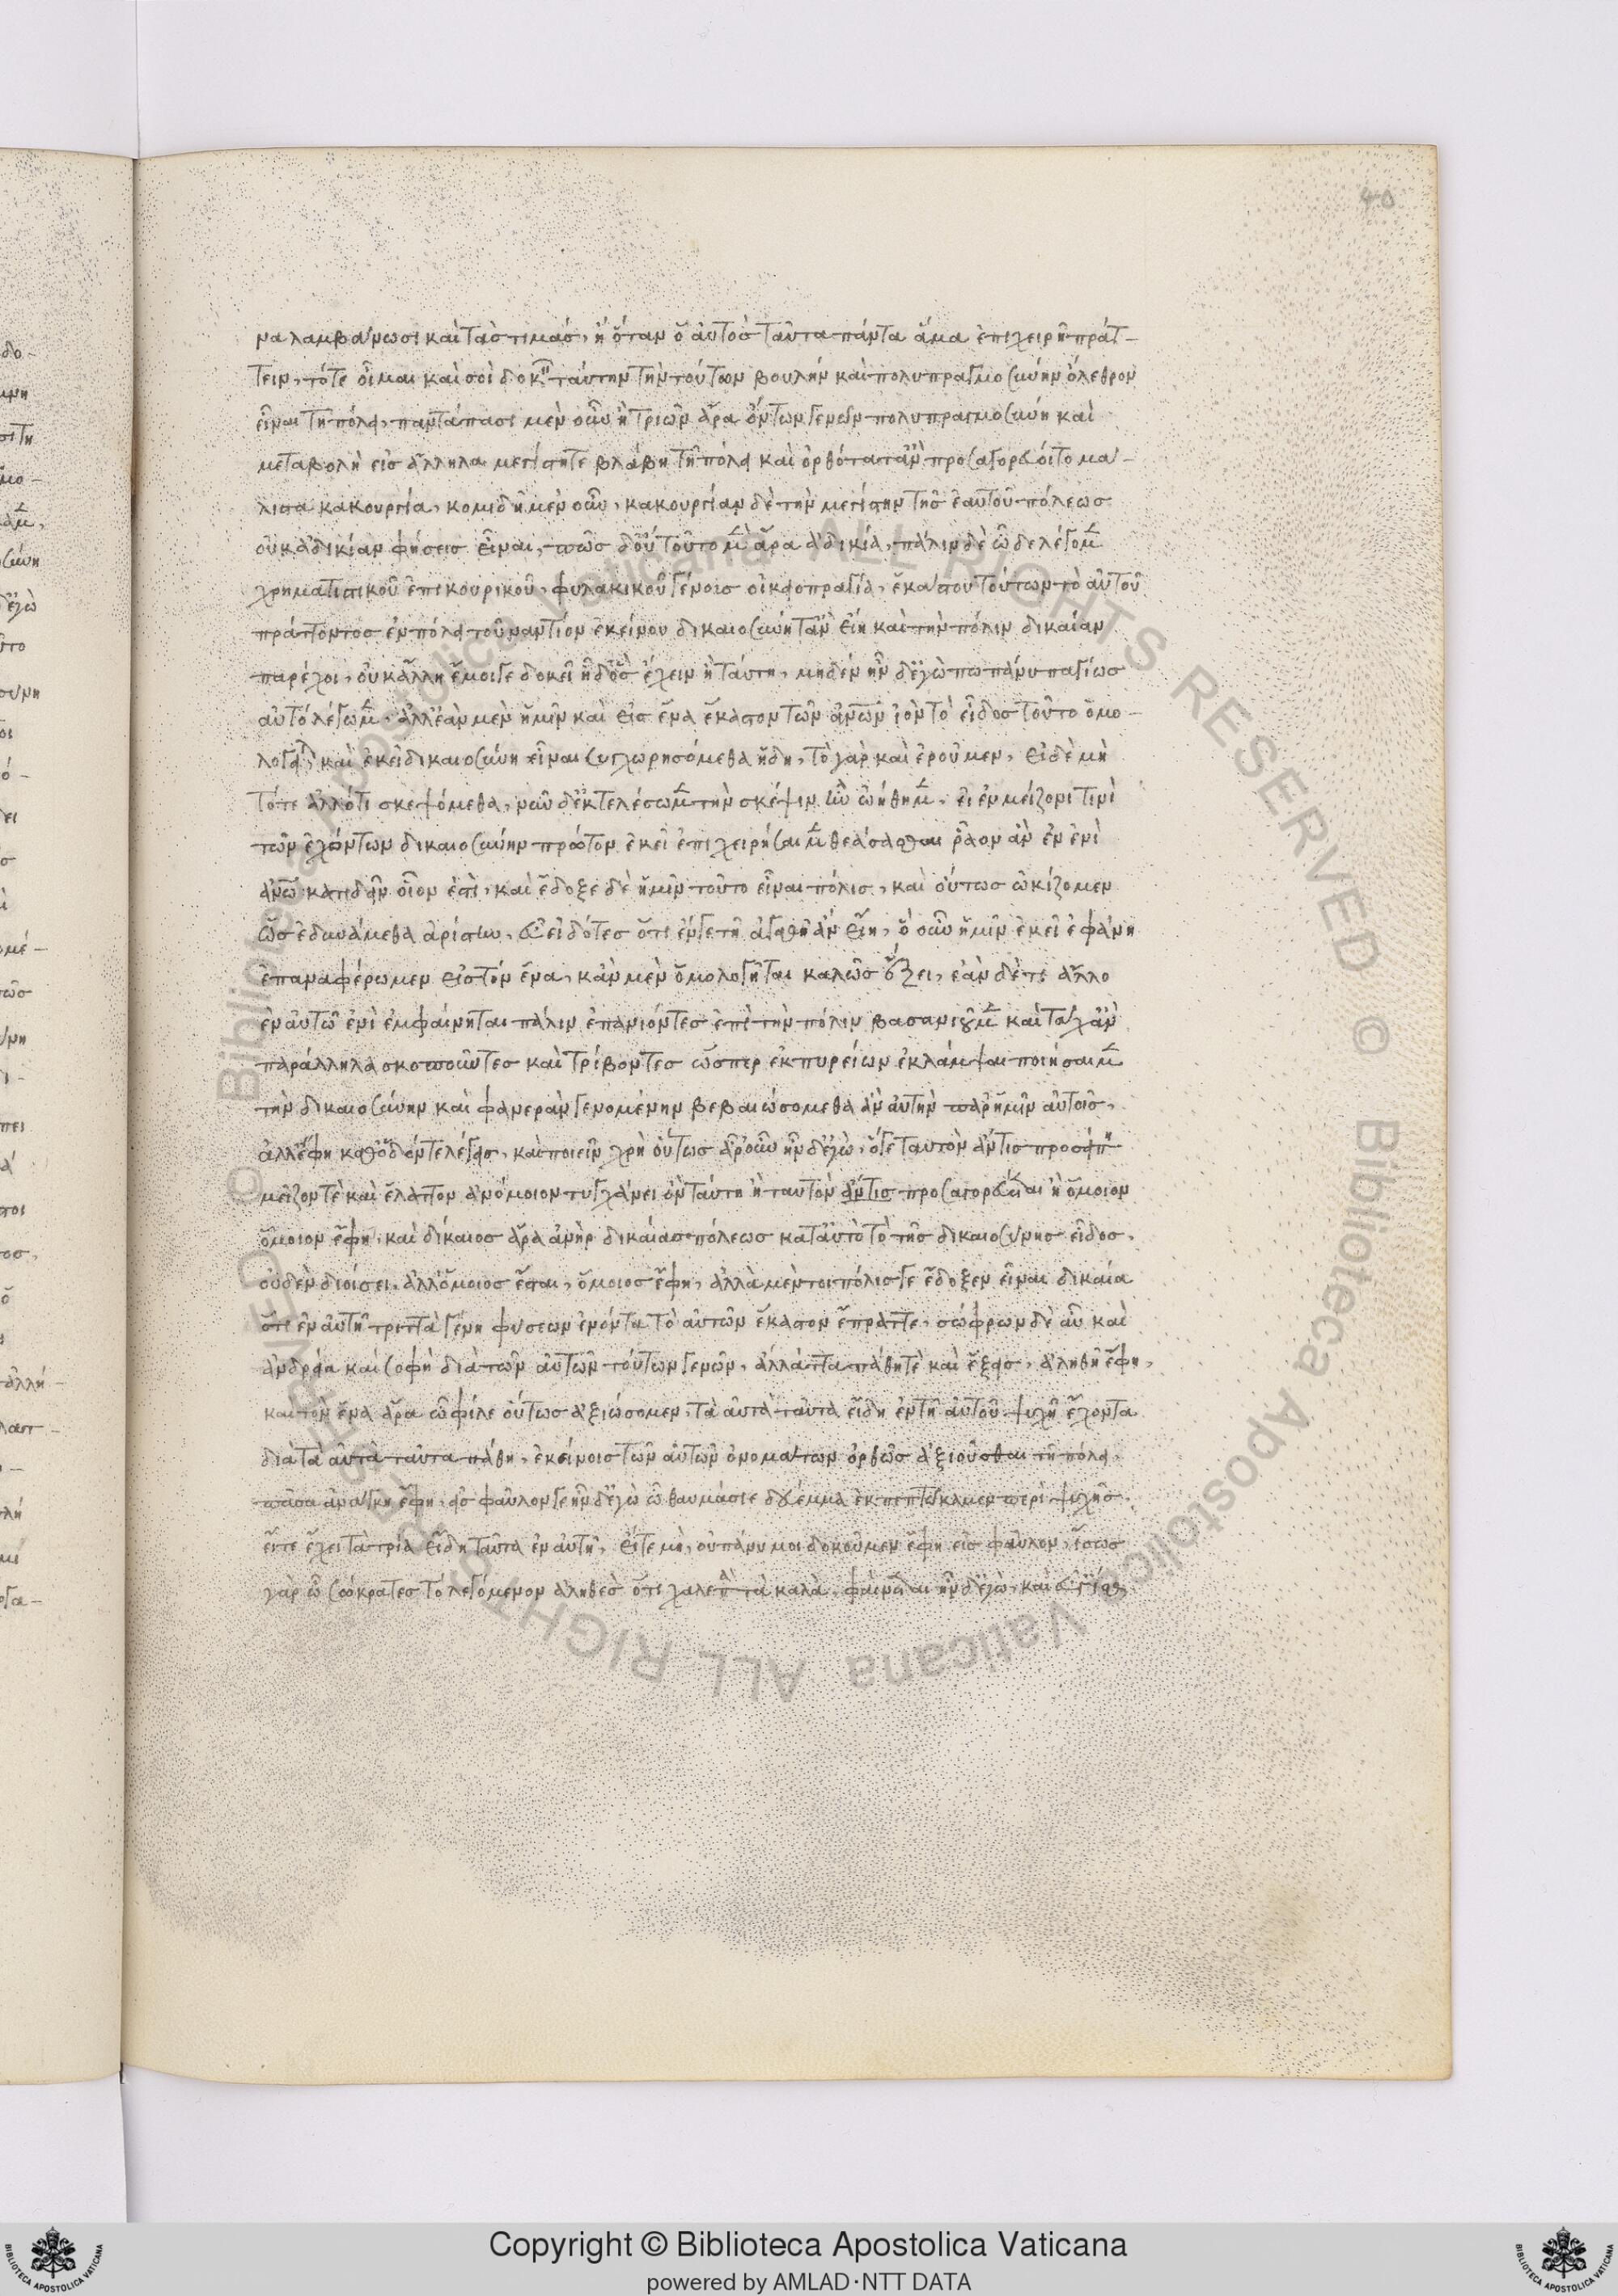 40
να λαμβάνωσι καὶ τὰς τιμάς, ἢ ὅταν ὁ αὐτὸς ταῦτα πάντα ἅμα ἐπιχειρῆ πράτ-
τειν, τότε οἶμαι καὶ σοὶ δοκ ταύτην τὴν τούτων βουλὴν καὶ πολυπραγμοσύνην ὄλεθρον
εἶναι τῆ πόλει, παντάπασι μὲν οὖν ἡ τριῶν ἄρα ὄντων γενῶν πολυπραγμοσύνη καὶ
μεταβολὴ εἰς ἄλληλα μεγίστη τε βλάβη τῆ πόλει καὶ ὀρθότατ' ἂν προσαγορεύοιτο μά-
λιστα κακουργία, κομιδῆ μὲν οὖν, κακουργίαν δὲ τὴν μεγίστην τῆς ἑαυτοῦ πόλεως
οὐκ ἀδικίαν φήσεις εἶναι, πῶς δ' οὔ τοῦτο μὲν ἄρα ἀδικία, πάλιν δὲ ὧδε λέγομεν
χρηματιστικοῦ ἐπικουρικοῦ, φυλακικοῦ γένοις οἰκειοπραγία, ἑκάστου τούτων τὸ αὑτοῦ
πράττοντος ἐν πόλει τοὐναντίον ἐκείνου δικαιοσύνη τ' ἂν εἴη καὶ τὴν πόλιν δικαίαν
παρέχοι, οὐκ ἄλλη ἔμοιγε δοκεῖ ἦ δ' ὃς ἔχειν ἢ ταύτη, μηδὲν ἦν δ' ἐγὼ πω πάνυ παγίως
αὐτὸ λέγωμεν, ἀλλ' ἐὰν μὲν ἡμῖν καὶ εἰς ἕνα ἕκαστον τῶν ἀνων ἰὸν τὸ εἶδος τοῦτο ὁμο-
λογῆται καὶ ἐκεῖ δικαιοσύνη εἶναι συγχωρησόμεθα ἤδη, τὸ γὰρ καὶ ἐροῦμεν, εἰ δὲ μὴ
τότε ἄλλό τι σκεψόμεθα, νῦν δ' ἐκτελέσωμεν τὴν σκέψιν ἣν ὠήθημεν, εἰ ἐν μείζονι τινὶ
τῶν ἐχόντων δικαιοσύνην πρῶτον ἐκεῖ ἐπιχειρήσαιμεν θεάσασθαι ῥᾶον ἂν ἐν ἑνὶ
ἀνω κατιδεῖν οἷον ἐστὶ, καὶ ἔδοξε δὲ ἡμῖν τοῦτο εἶναι πόλις, καὶ οὕτως ὠκίζομεν
ὡς ἐδυνάμεθα ἀρίστην, εὖ εἰδότες ὅτι ἔν γε τῆ ἀγαθῆ ἂν εἴη, ὃ οὖν ἡμῖν ἐκεῖ ἐφάνη
ἐπαναφέρωμεν εἰς τὸν ἕνα, κἂν μὲν ὁμολογῆται καλῶς ἕξει, ἐὰν δέ τι ἄλλο
ἐν αὐτῶ ἑνὶ ἐμφαίνηται πάλιν ἐπανιόντες ἐπὶ τὴν πόλιν βασανιοῦμεν καὶ τάχ' ἂν
παράλληλα σκοποῦντες καὶ τρίβοντες ὥσπερ ἐκ πυρείων ἐκλάμψαι ποιήσαιμεν
τὴν δικαιοσύνην καὶ φανερὰν γενομένην βεβαιωσόμεθα ἂν αὐτὴν παρ' ἡμῖν αὐτοῖς,
ἀλλ' ἔφη καθ' ὁδόν τε λέγεις, καὶ ποιεῖν χρὴ οὕτως ἆρ' οὖν ἦν δ' ἐγὼ, ὅ γε ταυτὸν ἄν τις προσείπη
μεῖζόν τε καὶ ἔλαττον ἀνόμοιον τυγχάνει ὂν ταύτη ἢ ταυτὸν ἄν τις προσαγορεύεται ἢ ὅμοιον
ὅμοιον ἔφη, καὶ δίκαιος ἄρα ἀνὴρ δικαίας πόλεως κατ' αὐτὸ τὸ τῆς δικαιοσύνης εἶδος,
οὐδὲν διοίσει, ἀλλ' ὅμοιος ἔσται, ὅμοιος ἔφη, ἀλλὰ μέντοι πόλις γε ἔδοξεν εἶναι δικαία
ὅτι ἐν αὐτῆ τριττὰ γένη φύσεων ἐνόντα τὸ αὑτῶν ἕκαστον ἔπραττε, σώφρων δὲ αὖ καὶ
ἀνδρεία καὶ σοφὴ διὰ τῶν αὐτῶν τούτων γενῶν, ἀλλ' ἄττα πάθη τὲ καὶ ἕξεις, ἀληθῆ ἔφη,
καὶ τὸν ἕνα ἄρα ὦ φίλε οὕτως ἀξιώσομεν, τὰ αὐτὰ ταῦτα εἴδη ἐν τῆ αὑτοῦ ψυχῆ ἔχοντα
διὰ τὰ αὐτὰ ταῦτα πάθη, ἐκείνοις τῶν αὐτῶν ὀνομάτων ὀρθῶς ἀξιοῦσθαι τῆ πόλει,
πᾶσα ἀνάγκη ἔφη, εἰς φαῦλόν γε ἦν δ' ἐγὼ ὦ θαυμάσιε σκέμμα ἐκπεπτώκαμεν περὶ ψυχῆς
εἴτε ἔχει τὰ τρία εἴδη ταῦτα ἐν αὑτῆ, εἴτε μὴ, οὐ πάνυ μοι δοκοῦμεν ἔφη εἰς φαῦλον, ἴσως
γὰρ ὦ σώκρατες τὸ λεγόμενον ἀληθὲς ὅτι χαλεπὰ τὰ καλὰ, φαίνεται ἦν δ' ἐγὼ, καὶ εὖ γ' ἴσθι
Copyright © Biblioteca Apostolica Vaticana
powered by AMLAD·NTT DATA